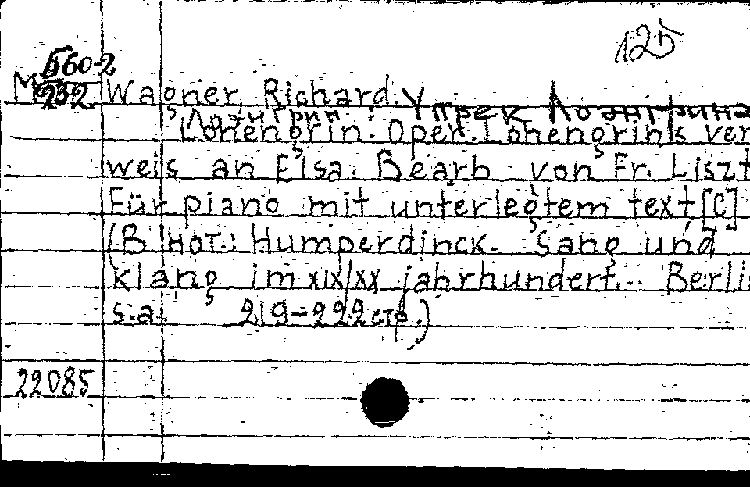 125
Б60-2
232
Wagner Richard. Упрек Лоэнгрина
Лоэнгрин:
(Lohengrin. Oper. Lohengrin's ver
weis an Elsa. Bearb von Fr. Liszt
Für piano mit unterlegtem text[C]
(В нот: Humperdinck. Sang und
klang im XIX/XX jahrhundert.. Berli
s.a. 219-222 стр.)
22085